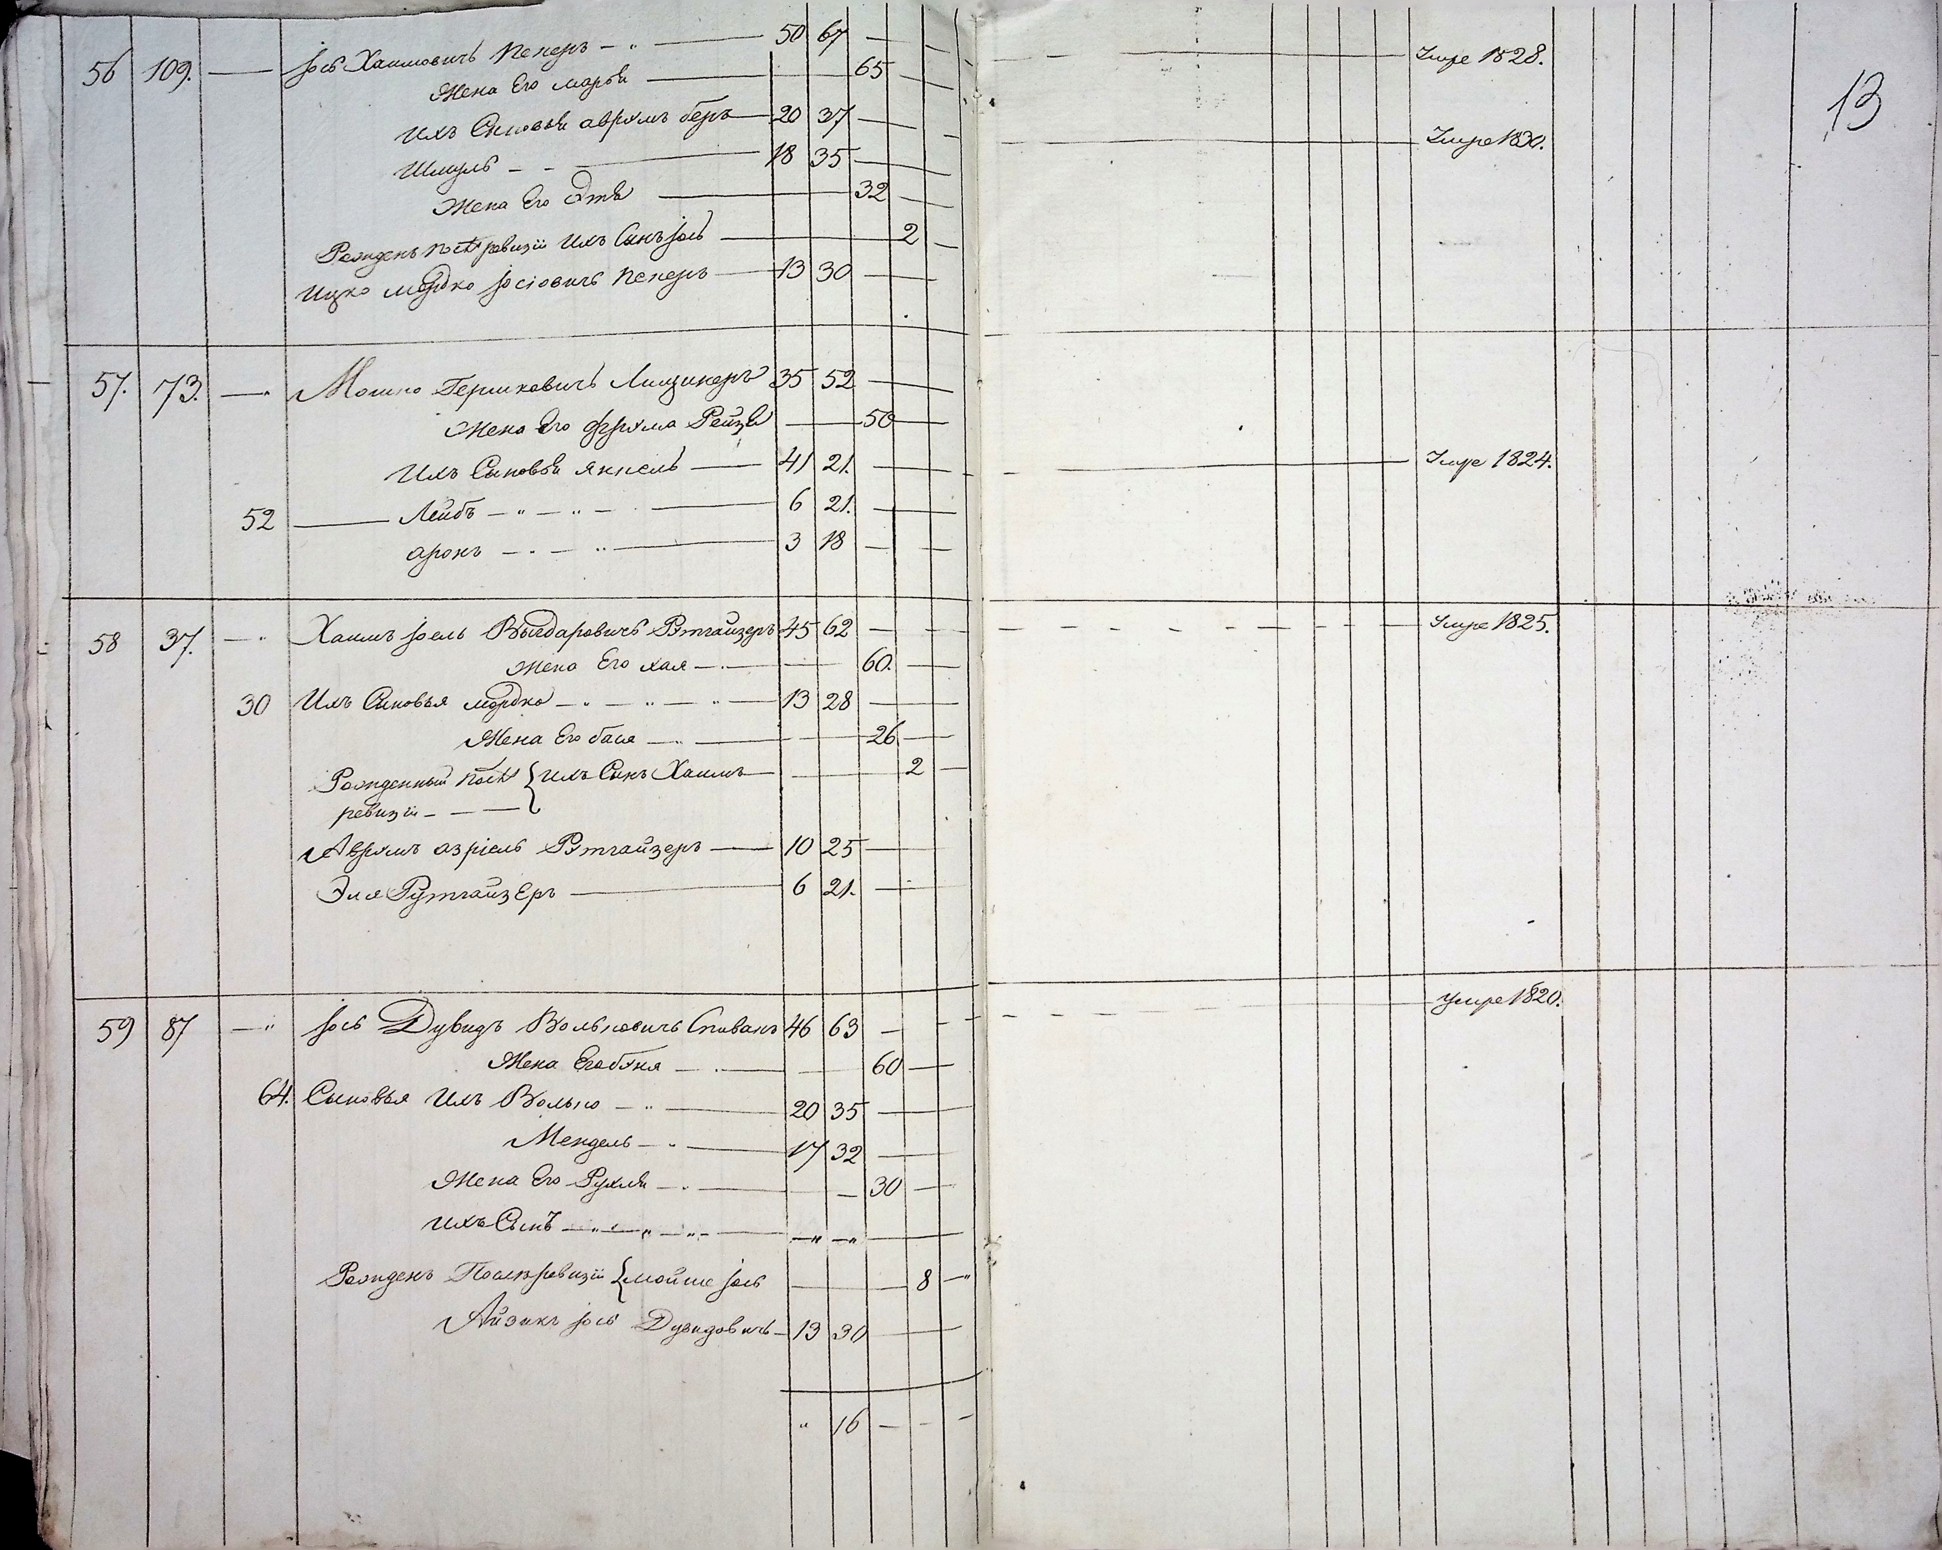 13
56 109. — Іось Хаимовичъ Пекеръ — 50 67 — Умре 1828.
Жена Его Марья — 65
Ихъ Сыновья Аврумъ беръ — 20 37 — Умре 1830.
Шмуль — 18 35 —
Жена Его Этя — 32
Рожденъ послѣ ревизіи Ихъ Сынъ Іось — 2 —
Ицко Мордко Іосіовичъ Пекеръ — 13 30 —
57. 73. — Мошко Гершковичъ Лищинеръ 35 52 —
Жена Его Фрума Рейзя — 50 —
Ихъ Сыновья Янкель — 41 21. — Умре 1824.
52 — Лейбъ — 6 21. —
Аронъ — 3 18 —
58 37. — Хаимъ Іоель Рутгайзеръ 45 62 — Умре 1825.
Жена Его Хая — 60. —
30 Ихъ Сыновья Мордко — 13 28 —
Жена Его бася — 26 —
Рожденный послѣ { Ихъ Сынъ Хаимъ — 2 —
ревизіи —
Аврумъ Азріель Рутгайзеръ — 10 25 —
Эля Рутгайзеръ — 6 21. —
59 87 — Іось Дувидъ Вольковичъ Спивакъ 46 63 — Умре 1820.
Жена Его буня — 60 —
64. Сыновья Ихъ Волько — 20 35 —
Мендель — 17 32 —
Жена Его Рухля — 30 —
Ихъ Сынъ —
Рожденъ Послѣ ревизіи { Мойше Іось — 8 —
Айзикъ Іось Дувидовичъ — 13 30 —
" 16 — — —